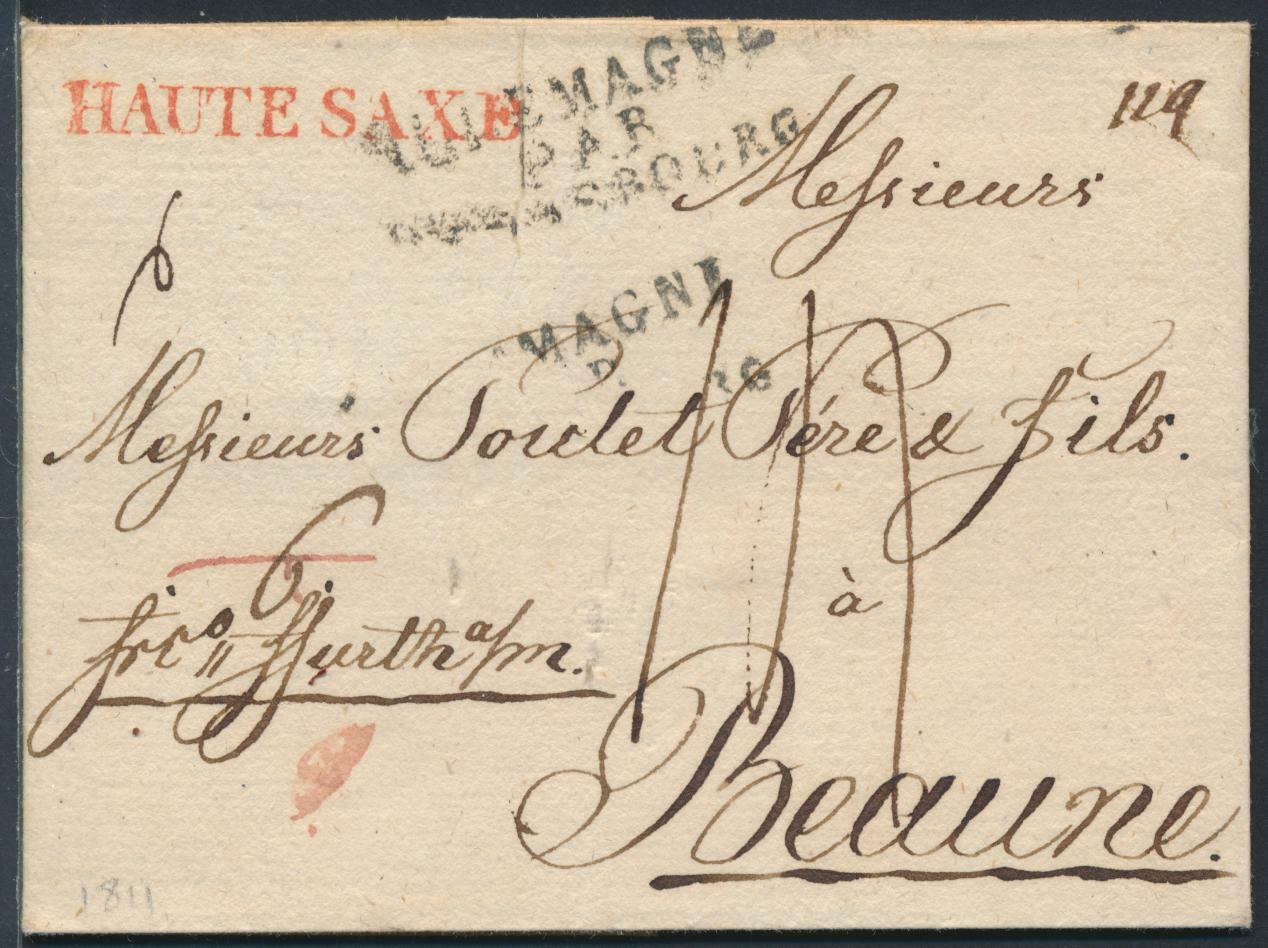 HAUTE SAXE
ALLEMAGNE
PAR
STRASBOURG
119
Messieurs
6
MAGNE
RG
Messieurs Poulet Pére & fils.
6
frco ffurth a/m.
à
Beaune.
1811